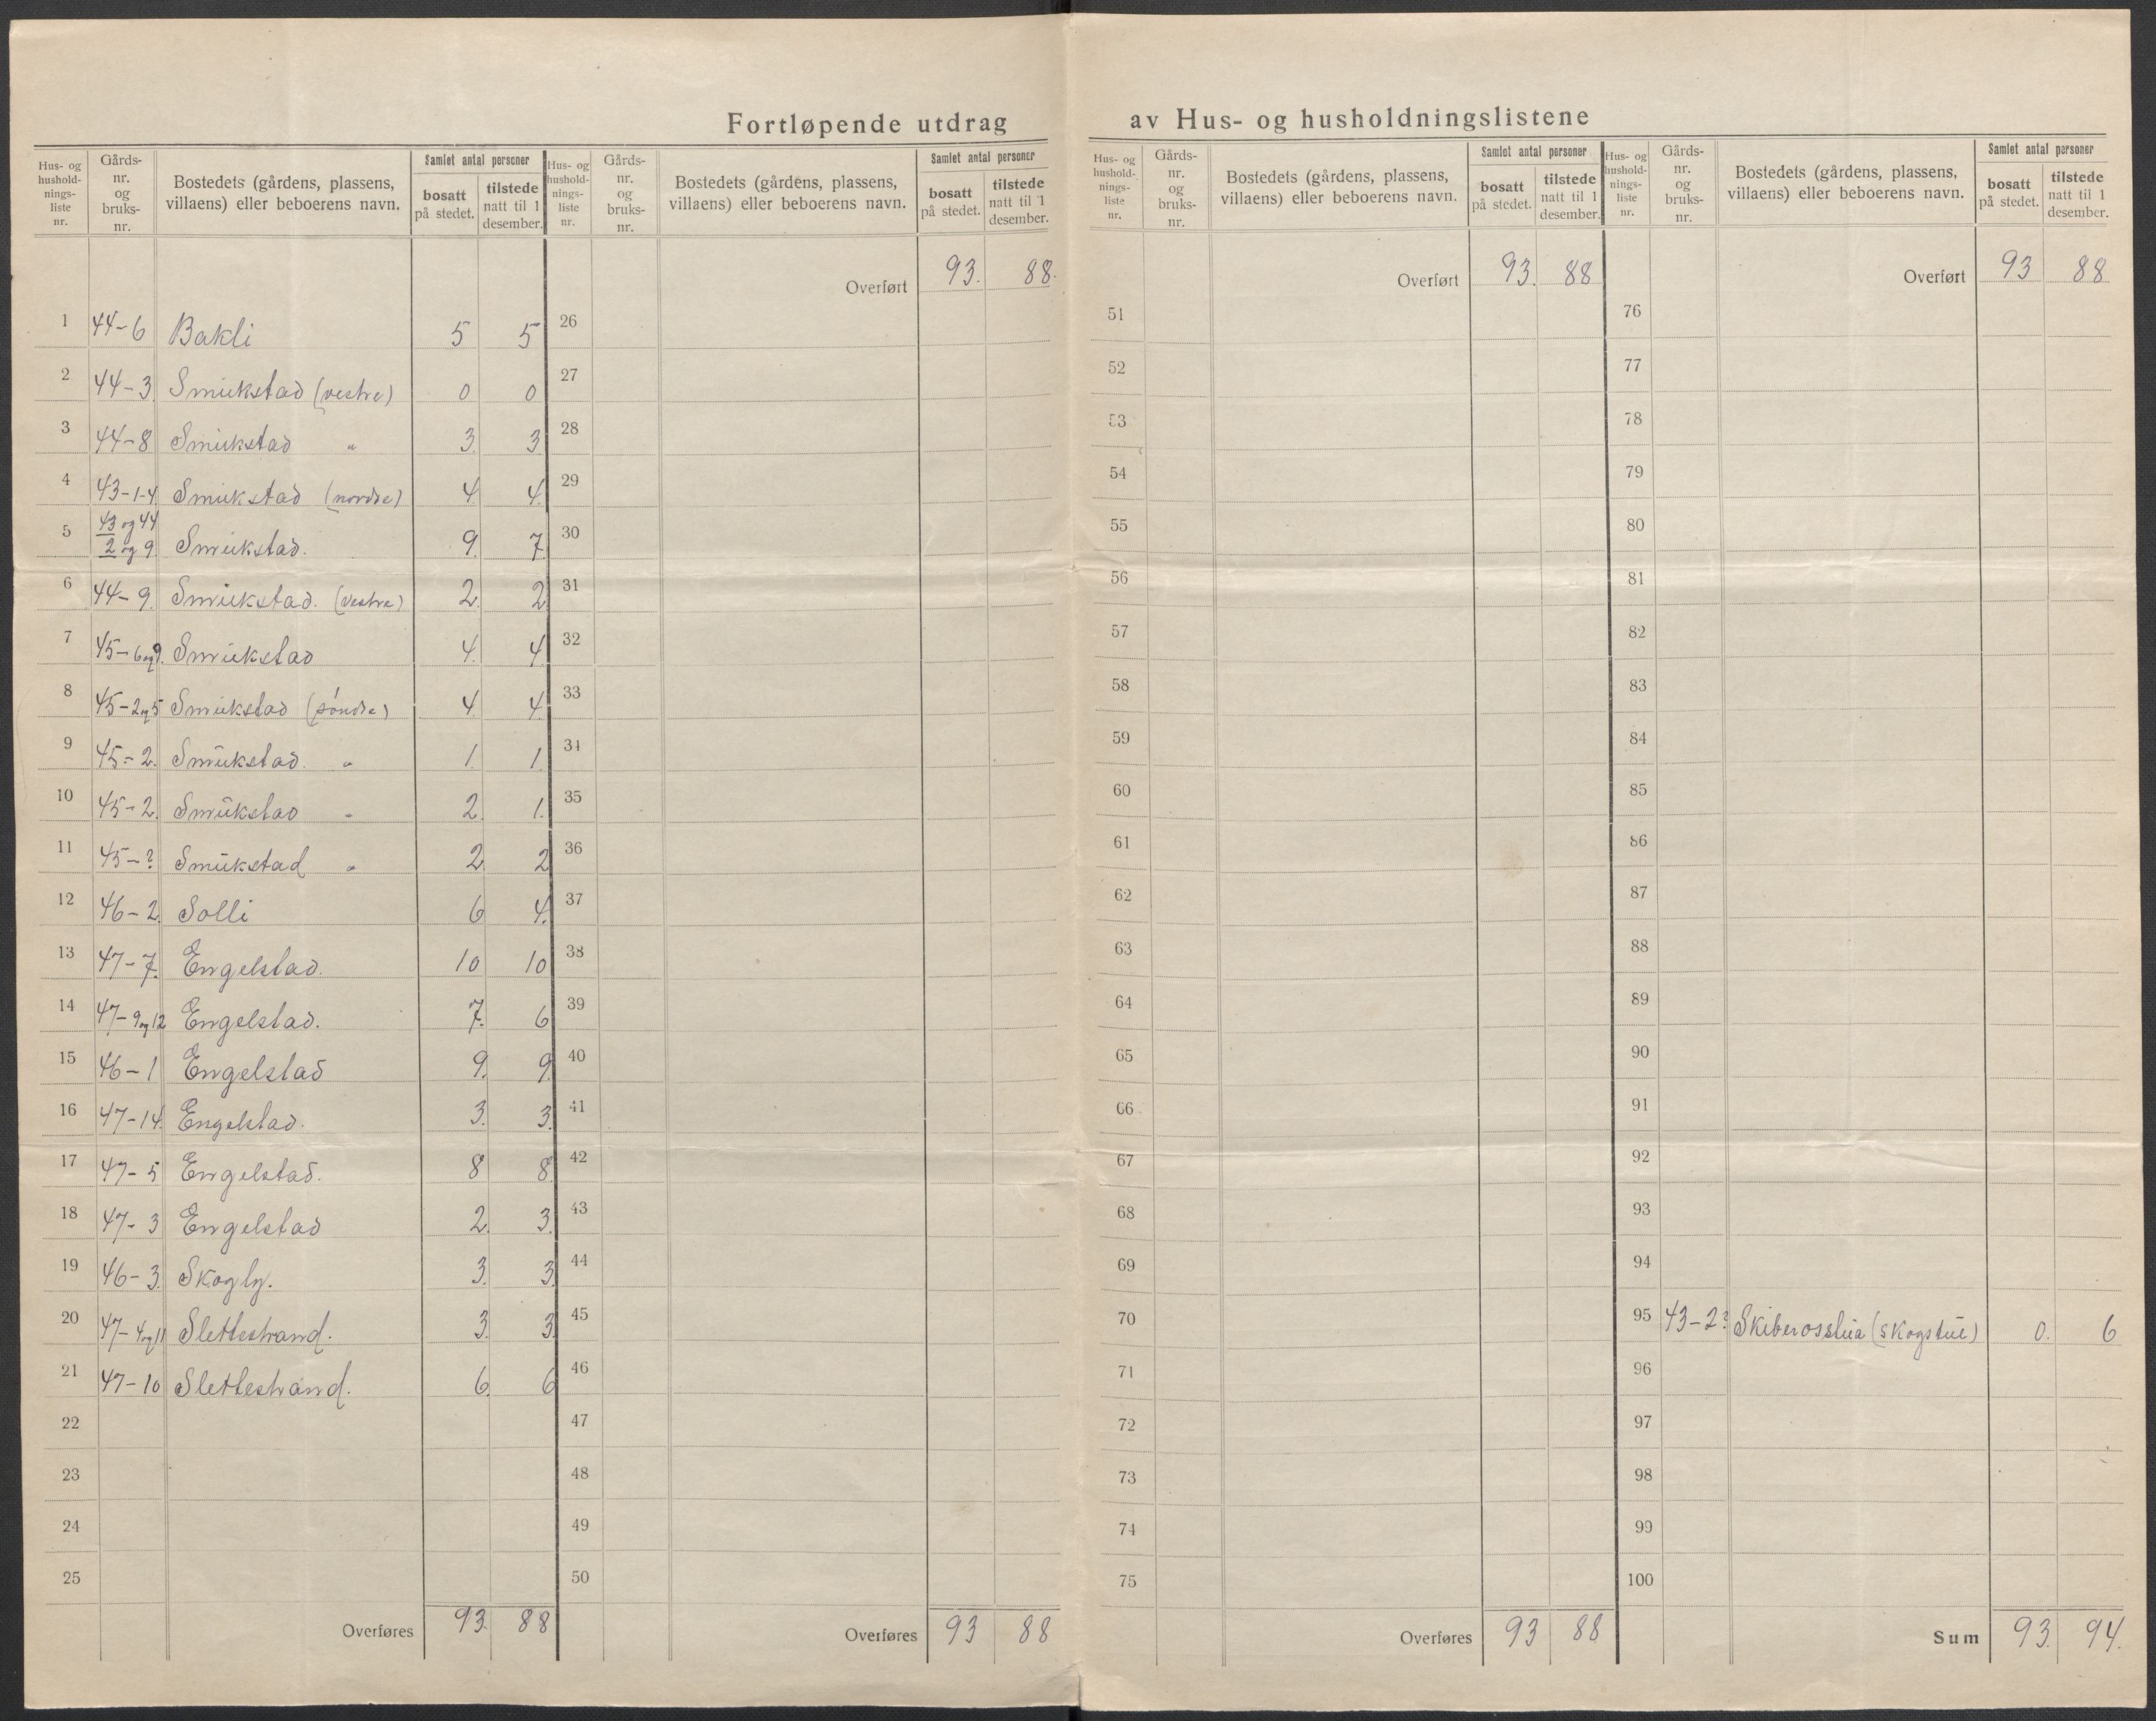 Fortløpende utdrag av Hus- og husholdningslistene
Hus- og hushold-nings-liste nr.
Gårds-nr. og bruks-nr.
Bostedets (gårdens, plassens, villaens) eller beboerens navn.
Samlet antal personer
bosatt på stedet.
tilstede natt til 1 desember.
1 44-6 Bakli 5 5
2 44-3 Smükstad (vestre) 0 0
3 44-8 Smükstad " 3 3
4 43-1-4 Smükstad (nordre) 4 4
5 43 og 44 2 og 9 Smükstad. 9 7
6 44-9 Smükstad. (vestre) 2 2
7 45-6og9. Smükstad 4 4
8 45-2og5 Smükstad (søndre) 4 4
9 45-2. Smükstad. " 1 1
10 45-2. Smükstad " 2 1
11 45-? Smükstad " 2 2
12 46-2 Solli 6 4
13 47-7. Engelstad. 10 10
14 47-9og12 Engelstad. 7 6
15 46-1 Engelstad 9 9
16 47-14. Engelstad. 3 3
17 47-5 Engelstad. 8 8
18 47-3 Engelstad 2 3
19 46-3. Skogly. 3 3
20 47-4og11 Slettestrand. 3 3
21 47-10 Slettestrand. 6 6
22
23
24
25
Overføres 93 88
Hus- og hushold-nings-liste nr.
Gårds-nr. og bruks-nr.
Bostedets (gårdens, plassens, villaens) eller beboerens navn.
Samlet antal personer
bosatt på stedet.
tilstede natt til 1 desember.
Overført 93. 88.
26
27
28
29
30
31
32
33
34
35
36
37
38
39
40
41
42
43
44
45
46
47
48
49
50
Overføres 93 88
Hus- og hushold-nings-liste nr.
Gårds-nr. og bruks-nr.
Bostedets (gårdens, plassens, villaens) eller beboerens navn.
Samlet antal personer
bosatt på stedet.
tilstede natt til 1 desember.
Overført 93. 88
51
52
53
54
55
56
57
58
59
60
61
62
63
64
65
66
67
68
69
70
71
72
73
74
75
Overføres 93 88
Hus- og hushold-nings-liste nr.
Gårds-nr. og bruks-nr.
Bostedets (gårdens, plassens, villaens) eller beboerens navn.
Samlet antal personer
bosatt på stedet.
tilstede natt til 1 desember.
Overført 93 88
76
77
78
79
80
81
82
83
84
85
86
87
88
89
90
91
92
93
94
95 43-2? Skiberosstüa (skogstue) 0. 6
96
97
98
99
100
Sum 93. 94.